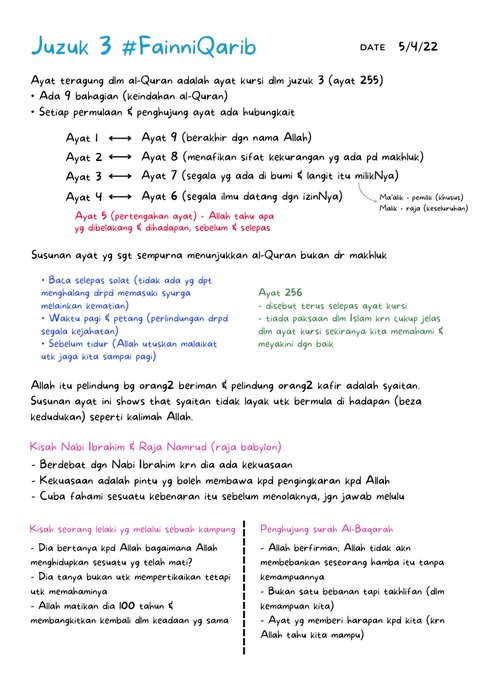 Juzuk 3 #FainniQarib
DATE 5/4/22
Ayat teragung dlm al-Quran adalah ayat kursi dlm juzuk 3 (ayat 255)
• Ada 9 bahagian (keindahan al-Quran)
• Setiap permulaan & penghujung ayat ada hubungkait
Ayat 1 ⟷ Ayat 9 (berakhir dgn nama Allah)
Ayat 2 ⟷ Ayat 8 (menafikan sifat kekurangan yg ada pd makhluk)
Ayat 3 ⟷ Ayat 7 (segala yg ada di bumi & langit itu milikNya)
Ayat 4 ⟷ Ayat 6 (segala ilmu datang dgn izinNya)
Ma'alik - pemilik (khusus)
Malik - raja (keseluruhan)
Ayat 5 (pertengahan ayat) - Allah tahu apa
yg dibelakang & dihadapan, sebelum & selepas
Susunan ayat yg sgt sempurna menunjukkan al-Quran bukan dr makhluk
• Baca selepas solat (tidak ada yg dpt
menghalang drpd memasuki syurga
melainkan kematian)
• Waktu pagi & petang (perlindungan drpd
segala kejahatan)
• Sebelum tidur (Allah utuskan malaikat
utk jaga kita sampai pagi)
Ayat 256
- disebut terus selepas ayat kursi
- tiada paksaan dlm Islam krn cukup jelas
dlm ayat kursi sekiranya kita memahami &
meyakini dgn baik
Allah itu pelindung bg orang2 beriman & pelindung orang2 kafir adalah syaitan.
Susunan ayat ini shows that syaitan tidak layak utk bermula di hadapan (beza
kedudukan) seperti kalimah Allah.
Kisah Nabi Ibrahim & Raja Namrud (raja babylon)
- Berdebat dgn Nabi Ibrahim krn dia ada kekuasaan
- Kekuasaan adalah pintu yg boleh membawa kpd pengingkaran kpd Allah
- Cuba fahami sesuatu kebenaran itu sebelum menolaknya, jgn jawab melulu
Kisah seorang lelaki yg melalui sebuah kampung
- Dia bertanya kpd Allah bagaimana Allah
menghidupkan sesuatu yg telah mati?
- Dia tanya bukan utk mempertikaikan tetapi
utk memahaminya
- Allah matikan dia 100 tahun &
membangkitkan kembali dlm keadaan yg sama
Penghujung surah Al-Baqarah
- Allah berfirman; Allah tidak akn
membebankan seseorang hamba itu tanpa
kemampuannya
- Bukan satu bebanan tapi takhlifan (dlm
kemampuan kita)
- Ayat yg memberi harapan kpd kita (krn
Allah tahu kita mampu)